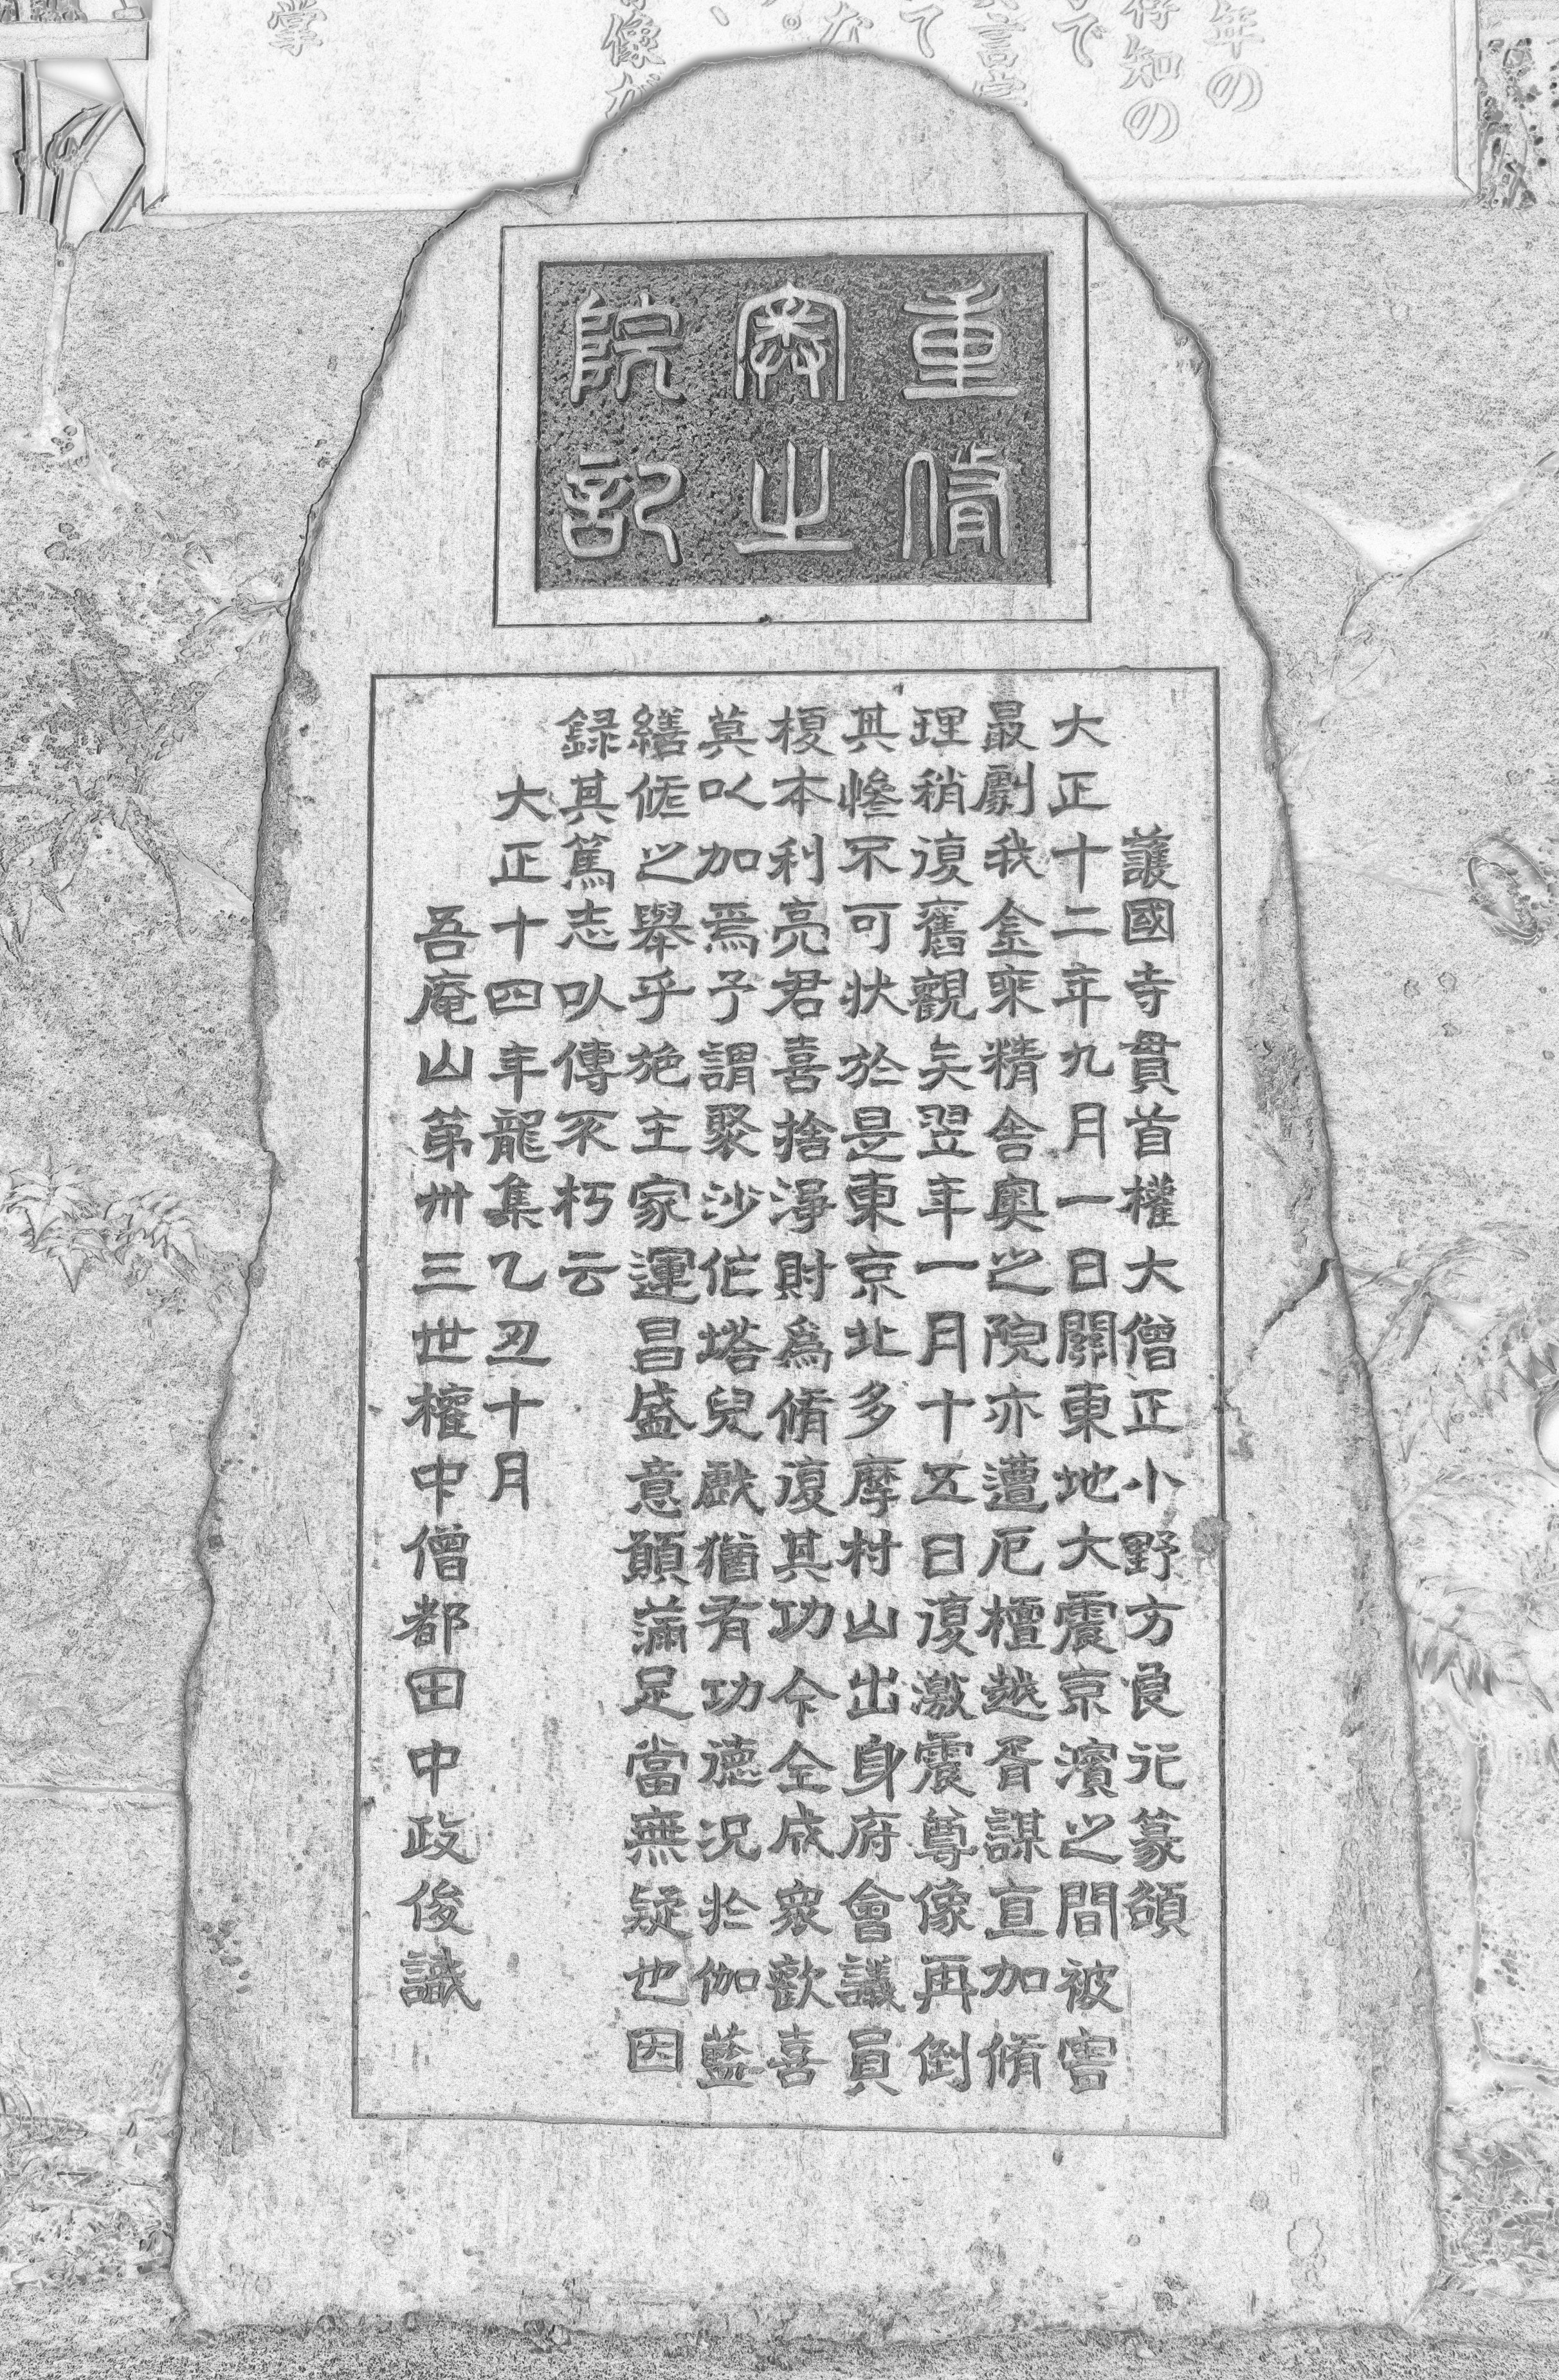 重脩
奥之
院記
護國寺貫首權大僧正小野方良元篆額
大正十二年九月一日關東地大震京濱之間被害
最劇我金乘精舎奥之院亦遭厄檀越胥謀亶加脩
理稍復舊觀矣翌年一月十五日復激震尊像再倒
其慘不可状於是東京北多摩村山出身府會議員
榎本利亮君喜捨淨財爲脩復其功今全成衆歡喜
莫以加焉予謂聚沙作塔兒戲猶有功德况於伽藍
繕修之舉乎施主家運昌盛意願滿足當無疑也因
録其篤志以傳不朽云
大正十四年龍集乙丑十月
吾庵山第卅三世權中僧都田中政俊識
年の
存知の
で
言宗
て
な
像が
掌